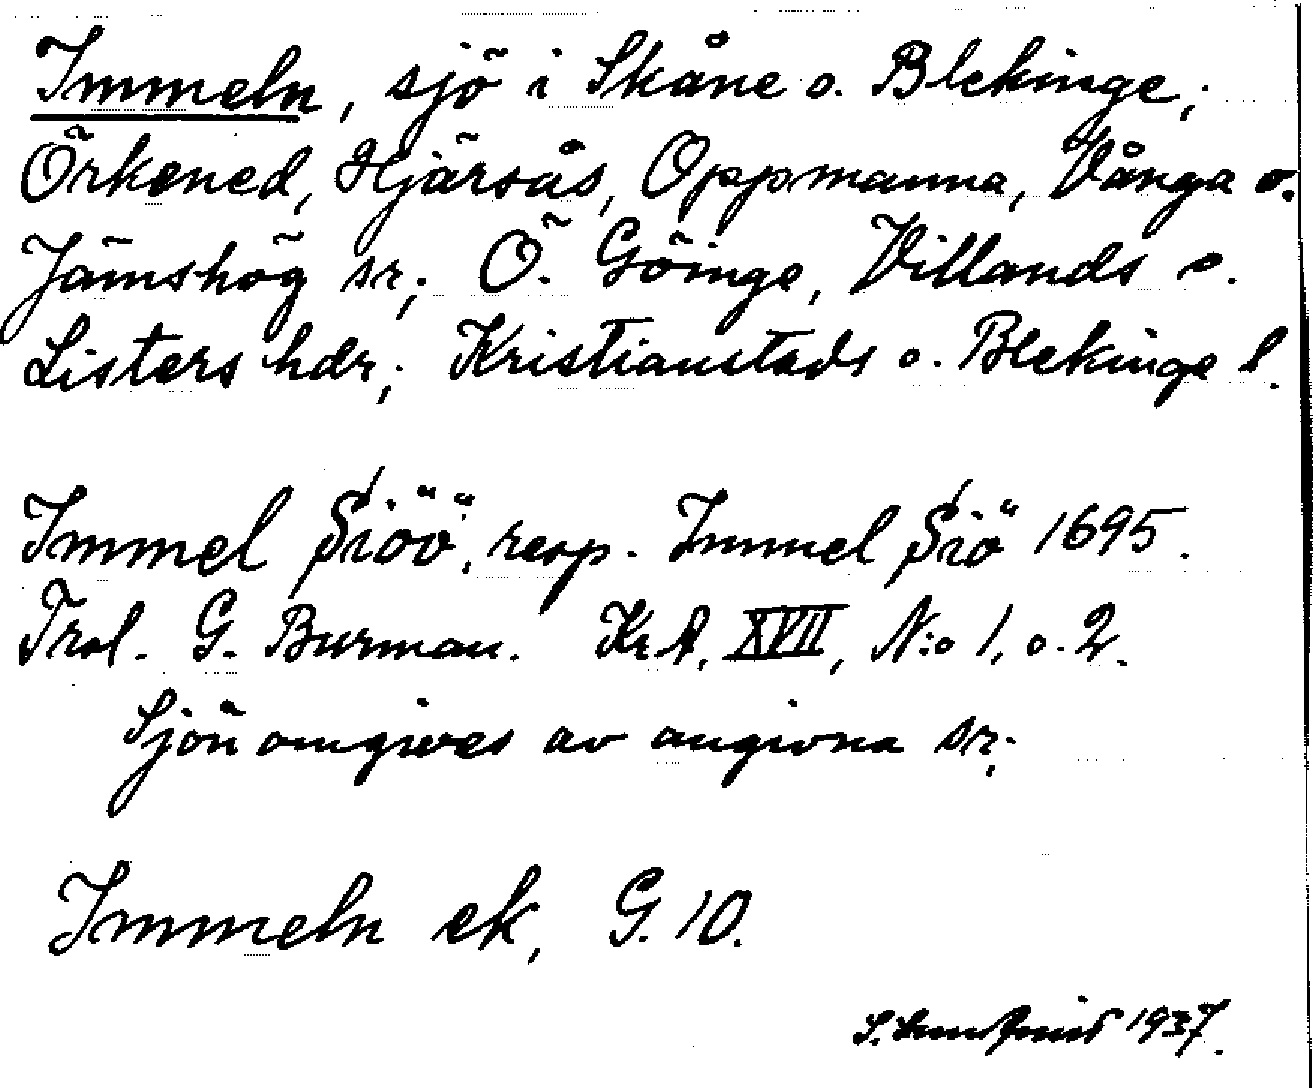 Immeln, sjö i Skåne o. Blekinge;
Örkened, Hjärsås, Oppmanna, Vånga o.
Jämshög sr; Ö. Göinge, Villands o.
Listers hdr; Kristianstads o. Blekinge l.
Immel Siöö, resp. Immel Siö 1695.
Trol. G. Burman. KrA, XVII, N:o 1, o. 2.
Sjön omgives av angivna sr;
Immeln ek, G. 10.
S. 1937.